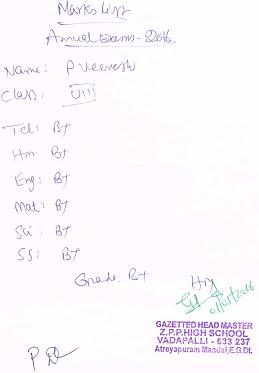 Marks List
Annual Exams - 2016.
Name: P Veeresh
Class: VIII
Tel: B+
Hin: B+
Eng: B+
Mat: B+
Sci: B+
SS: B+
Grade. B+
GAZETTED HEAD MASTER
Z.P.P.HIGH SCHOOL
VADAPALLI - 533 237
Atreyapuram Mandal,E.G.Dt.